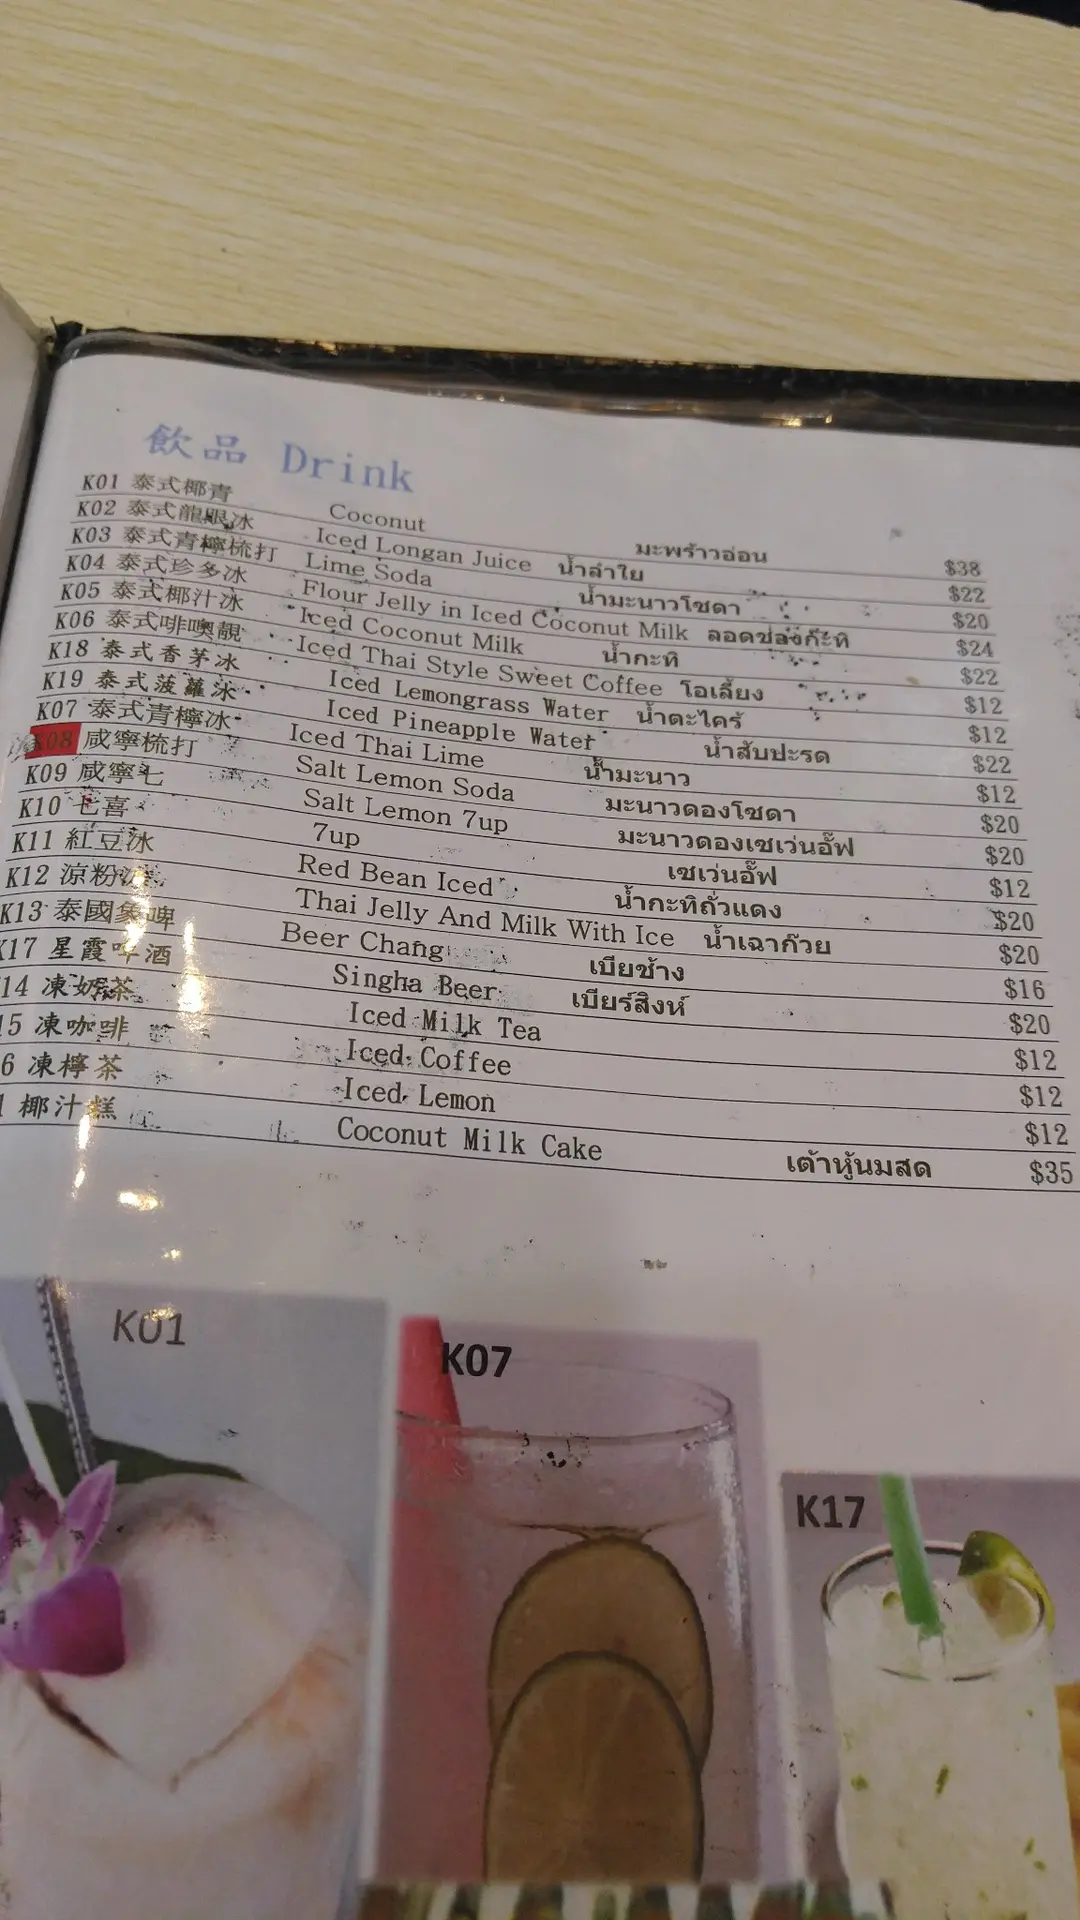 飲品 Drink
K01 泰式椰青 Coconut มะพร้าวอ่อน $38
K02 泰式龍眼冰 Iced Longan Juice น้ำลำใย $22
K03 泰式青檸梳打 Lime Soda น้ำมะนาวโซดา $20
K04 泰式珍多冰 Flour Jelly in Iced Coconut Milk ลอดช่องกะทิ $24
K05 泰式椰汁冰 Iced Coconut Milk น้ำกะทิ $22
K06 泰式啡噢靚 Iced Thai Style Sweet Coffee โอเลี้ยง $12
K18 泰式香茅冰 Iced Lemongrass Water น้ำตะไคร้ $12
K19 泰式菠蘿冰 Iced Pineapple Water น้ำสับปะรด $22
K07 泰式青檸冰 Iced Thai Lime น้ำมะนาว $12
K08 咸寧梳打 Salt Lemon Soda มะนาวดองโซดา $20
K09 咸寧七 Salt Lemon 7up มะนาวดองเซเว่นอั๊ฟ $20
K10 七喜 7up เซเว่นอั๊ฟ $12
K11 紅豆冰 Red Bean Iced น้ำกะทิถั่วแดง $20
K12 涼粉冰 Thai Jelly And Milk With Ice น้ำเฉาก๊วย $20
K13 泰國象啤 Beer Chang เบียช้าง $16
K17 星霞啤酒 Singha Beer เบียร์สิงห์ $20
14 凍奶茶 Iced Milk Tea $12
15 凍咖啡 Iced Coffee $12
6 凍檸茶 Iced Lemon $12
1 椰汁糕 Coconut Milk Cake เต้าหู้นมสด $35
K01
K07
K17